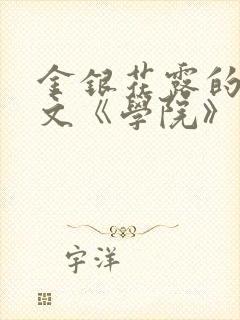 金銀花露的
文《學院》
宇洋